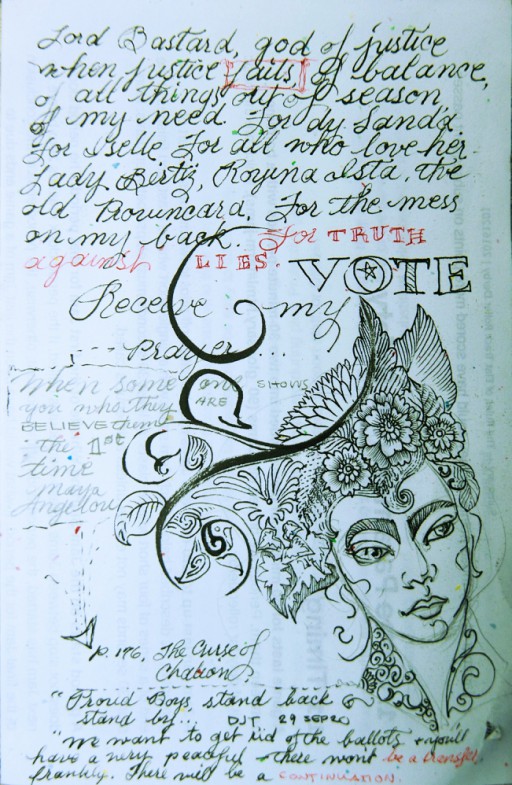 Lord Bastard, god of justice
when justice fails, of balance,
of all things out of season,
of my need. For dy Sanda.
For Iselle. For all who love her
Lady Betriz, Royina Ista, the
old Provincara. For the mess
on my back. For TRUTH
against LIES. VOTE
Receive my
Prayer...
When some one SHOWS
you who they ARE
BELIEVE them
the 1st
time
Maya
Angelou
p. 176, The Curse of
Chalion
"Proud Boys, stand back &
stand by... DJT 29 SEP20
"We want to get rid of the ballots & you'll
have a very peaceful - there won't be a transfer,
frankly. There will be a CONTINUATION.